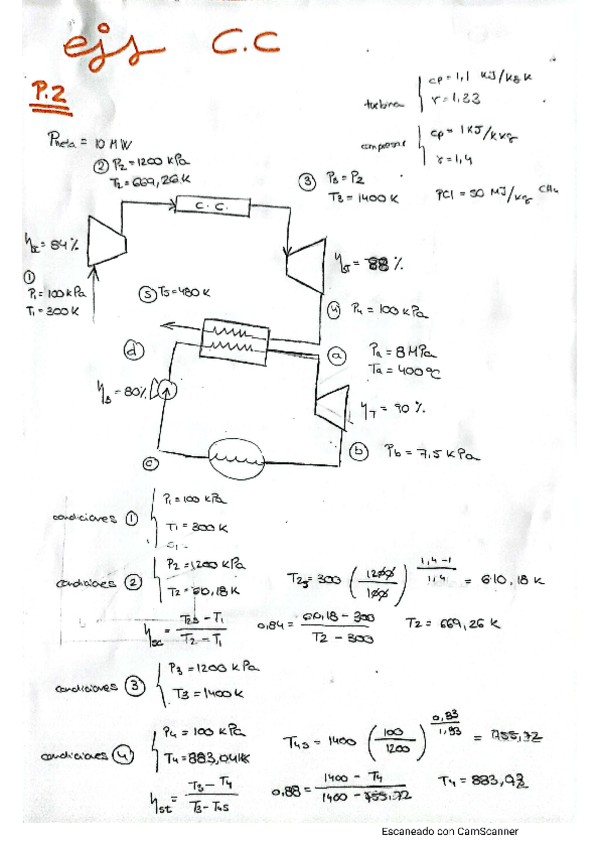 ejs C.C
P.2
turbina { cp = 1,1 KJ/kg K
γ = 1,33
compresor { cp = 1 KJ/kg K
γ = 1,4
PCI = 50 MJ/kg CH4
Pneta = 10 MW
② P2 = 1200 kPa
T2 = 669,26 K
③ P3 = P2
T3 = 1400 K
C.C.
ηsc = 84 %
① P1 = 100 kPa
T1 = 300 K
⑤ T5 = 480 K
ηst = 88 %
④ P4 = 100 kPa
ⓐ Pa = 8 MPa
Ta = 400 ºC
ⓓ
ηB = 80%
ηT = 90 %
ⓑ Pb = 7,5 kPa
ⓒ
condiciones ① { P1 = 100 kPa
T1 = 300 K
condiciones ② { P2 = 1200 kPa
T2 = 610,18 K
T2s = 300 (1200/100)^(1,4-1/1,4) = 610,18 K
ηsc = T2s - T1 / T2 - T1
0,84 = 610,18 - 300 / T2 - 300
T2 = 669,26 K
condiciones ③ { P3 = 1200 kPa
T3 = 1400 K
condiciones ④ { P4 = 100 kPa
T4 = 883,04 K
T4s = 1400 (100/1200)^(0,33/1,33) = 755,72
ηst = T3 - T4 / T3 - T4s
0,88 = 1400 - T4 / 1400 - 755,72
T4 = 883,03
Escaneado con CamScanner